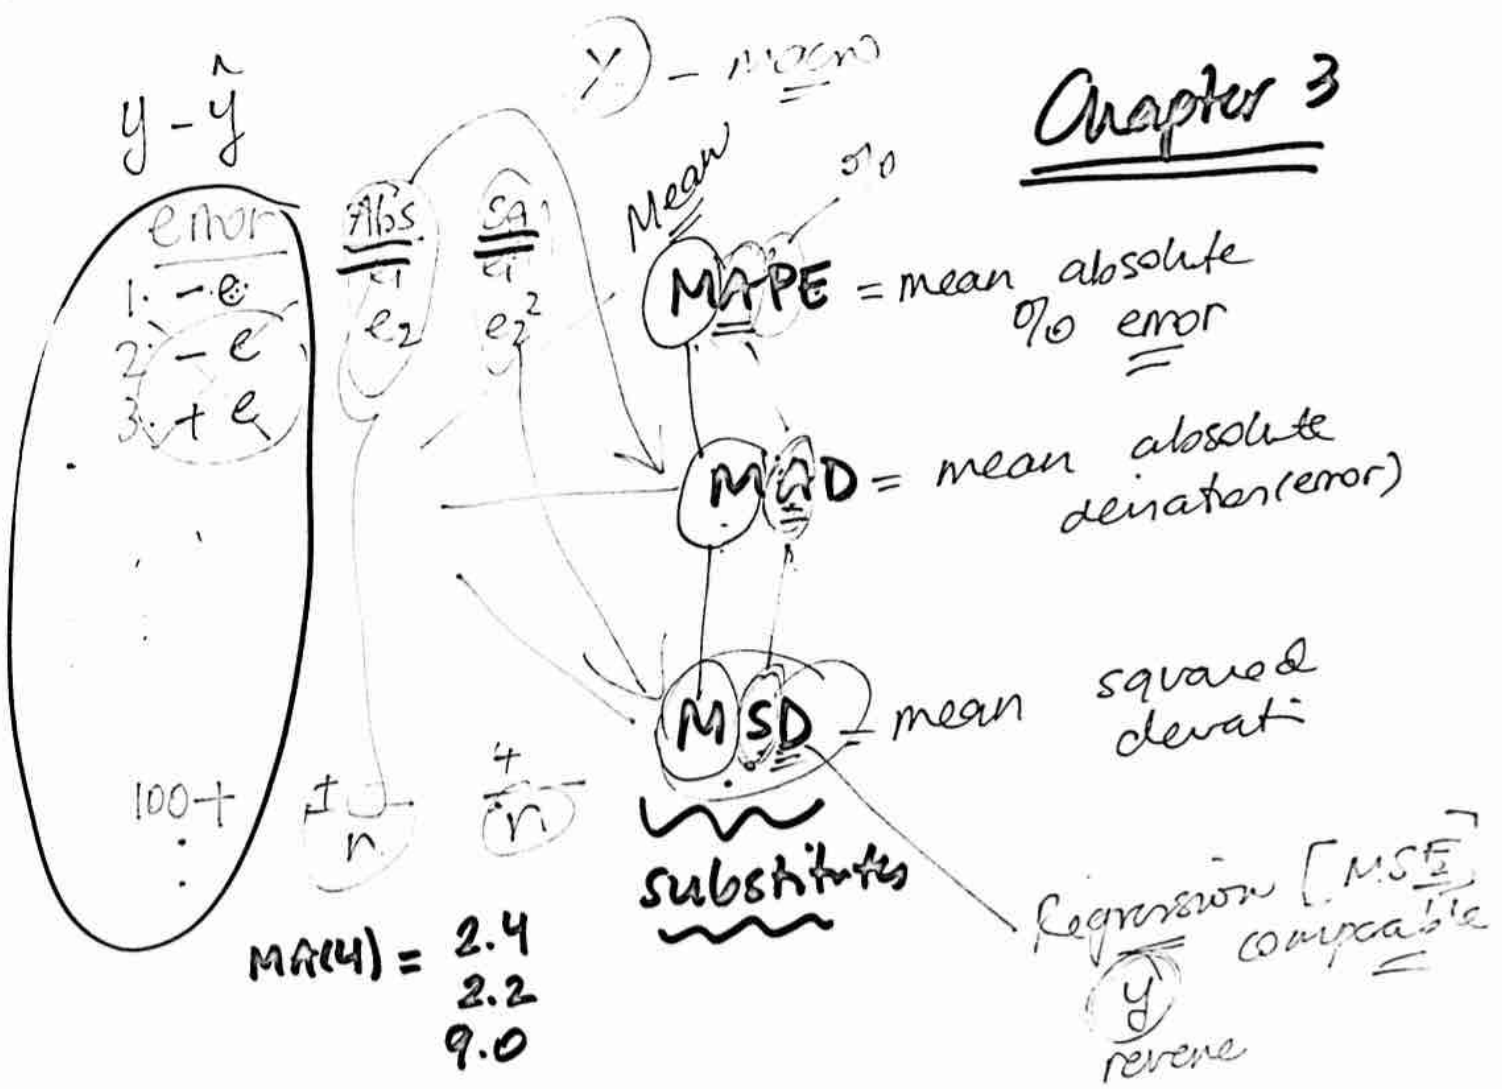 y - ŷ
Y - macro
Chapter 3
error
1. - e
2. - e
3. + e
100 +
Abs
e₁
e₂
n
Sq
e₂²
n
Mean
%
MAPE = mean absolute
% error
MAD = mean absolute
deviation(error)
MSD = mean squared
deviati
substitutes
MA(4) = 2.4
2.2
9.0
Regression [MSE]
comparable
y
revene